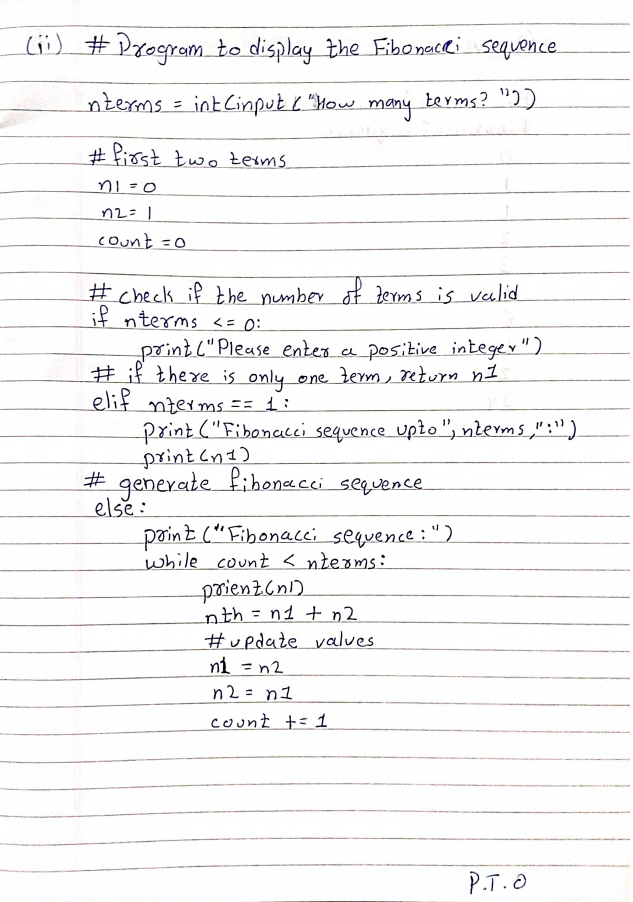 (ii) # Program to display the Fibonacci sequence
nterms = int(input("How many terms? "))
# first two terms
n1 = 0
n2 = 1
count = 0
# check if the number of terms is valid
if nterms <= 0:
print("Please enter a positive integer")
# if there is only one term, return n1
elif nterms == 1:
print("Fibonacci sequence upto", nterms, ":")
print(n1)
# generate fibonacci sequence
else:
print("Fibonacci sequence:")
while count < nterms:
prient(n1)
nth = n1 + n2
# update values
n1 = n2
n2 = n1
count += 1
P.T.O